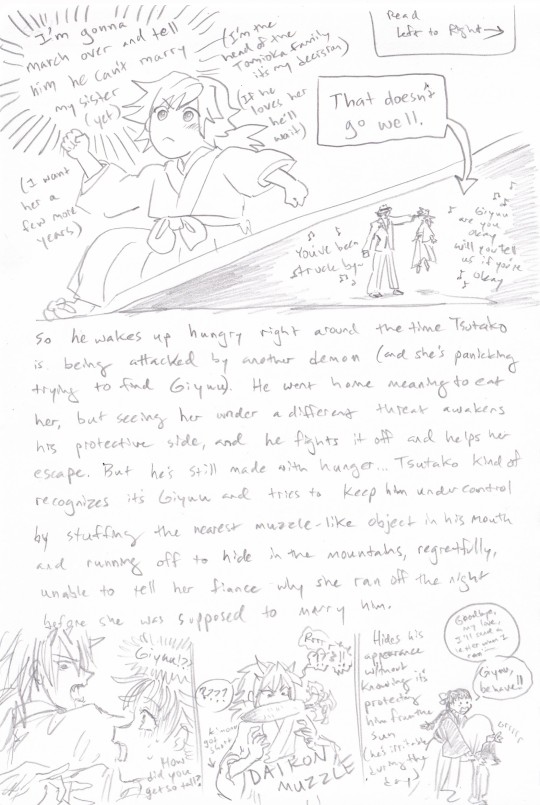 Read
Left to Right →
I'm gonna
march over and tell
him he can't marry
my sister
(yet)
(I'm the
head of the
Tomioka family
it's my decision)
(If he
loves her
he'll
wait)
(I want
her a
few more
years)
That doesn't
go well.
You've been
struck by~
Giyuu
are you
okay
will you tell
us if you're
okay
So he wakes up hungry right around the time Tsutako
is being attacked by another demon (and she's panicking
trying to find Giyuu). He went home meaning to eat
her, but seeing her under a different threat awakens
his protective side, and he fights it off and helps her
escape. But he's still made with hunger... Tsutako kind of
recognizes it's Giyuu and tries to keep him under control
by stuffing the nearest muzzle-like object in his mouth
and running off to hide in the mountains, regretfully,
unable to tell her fiance why she ran off the night
before she was supposed to marry him.
Giyuu!?
How
did you
get so tall?
????
DAIKON
MUZZLE
Hides his
appearance
without
knowing it's
protecting
him from the
sun
(he's irritable
during the
day)
Goodbye,
my love,
I'll send a
letter when I
can
Giyuu,
behave!!